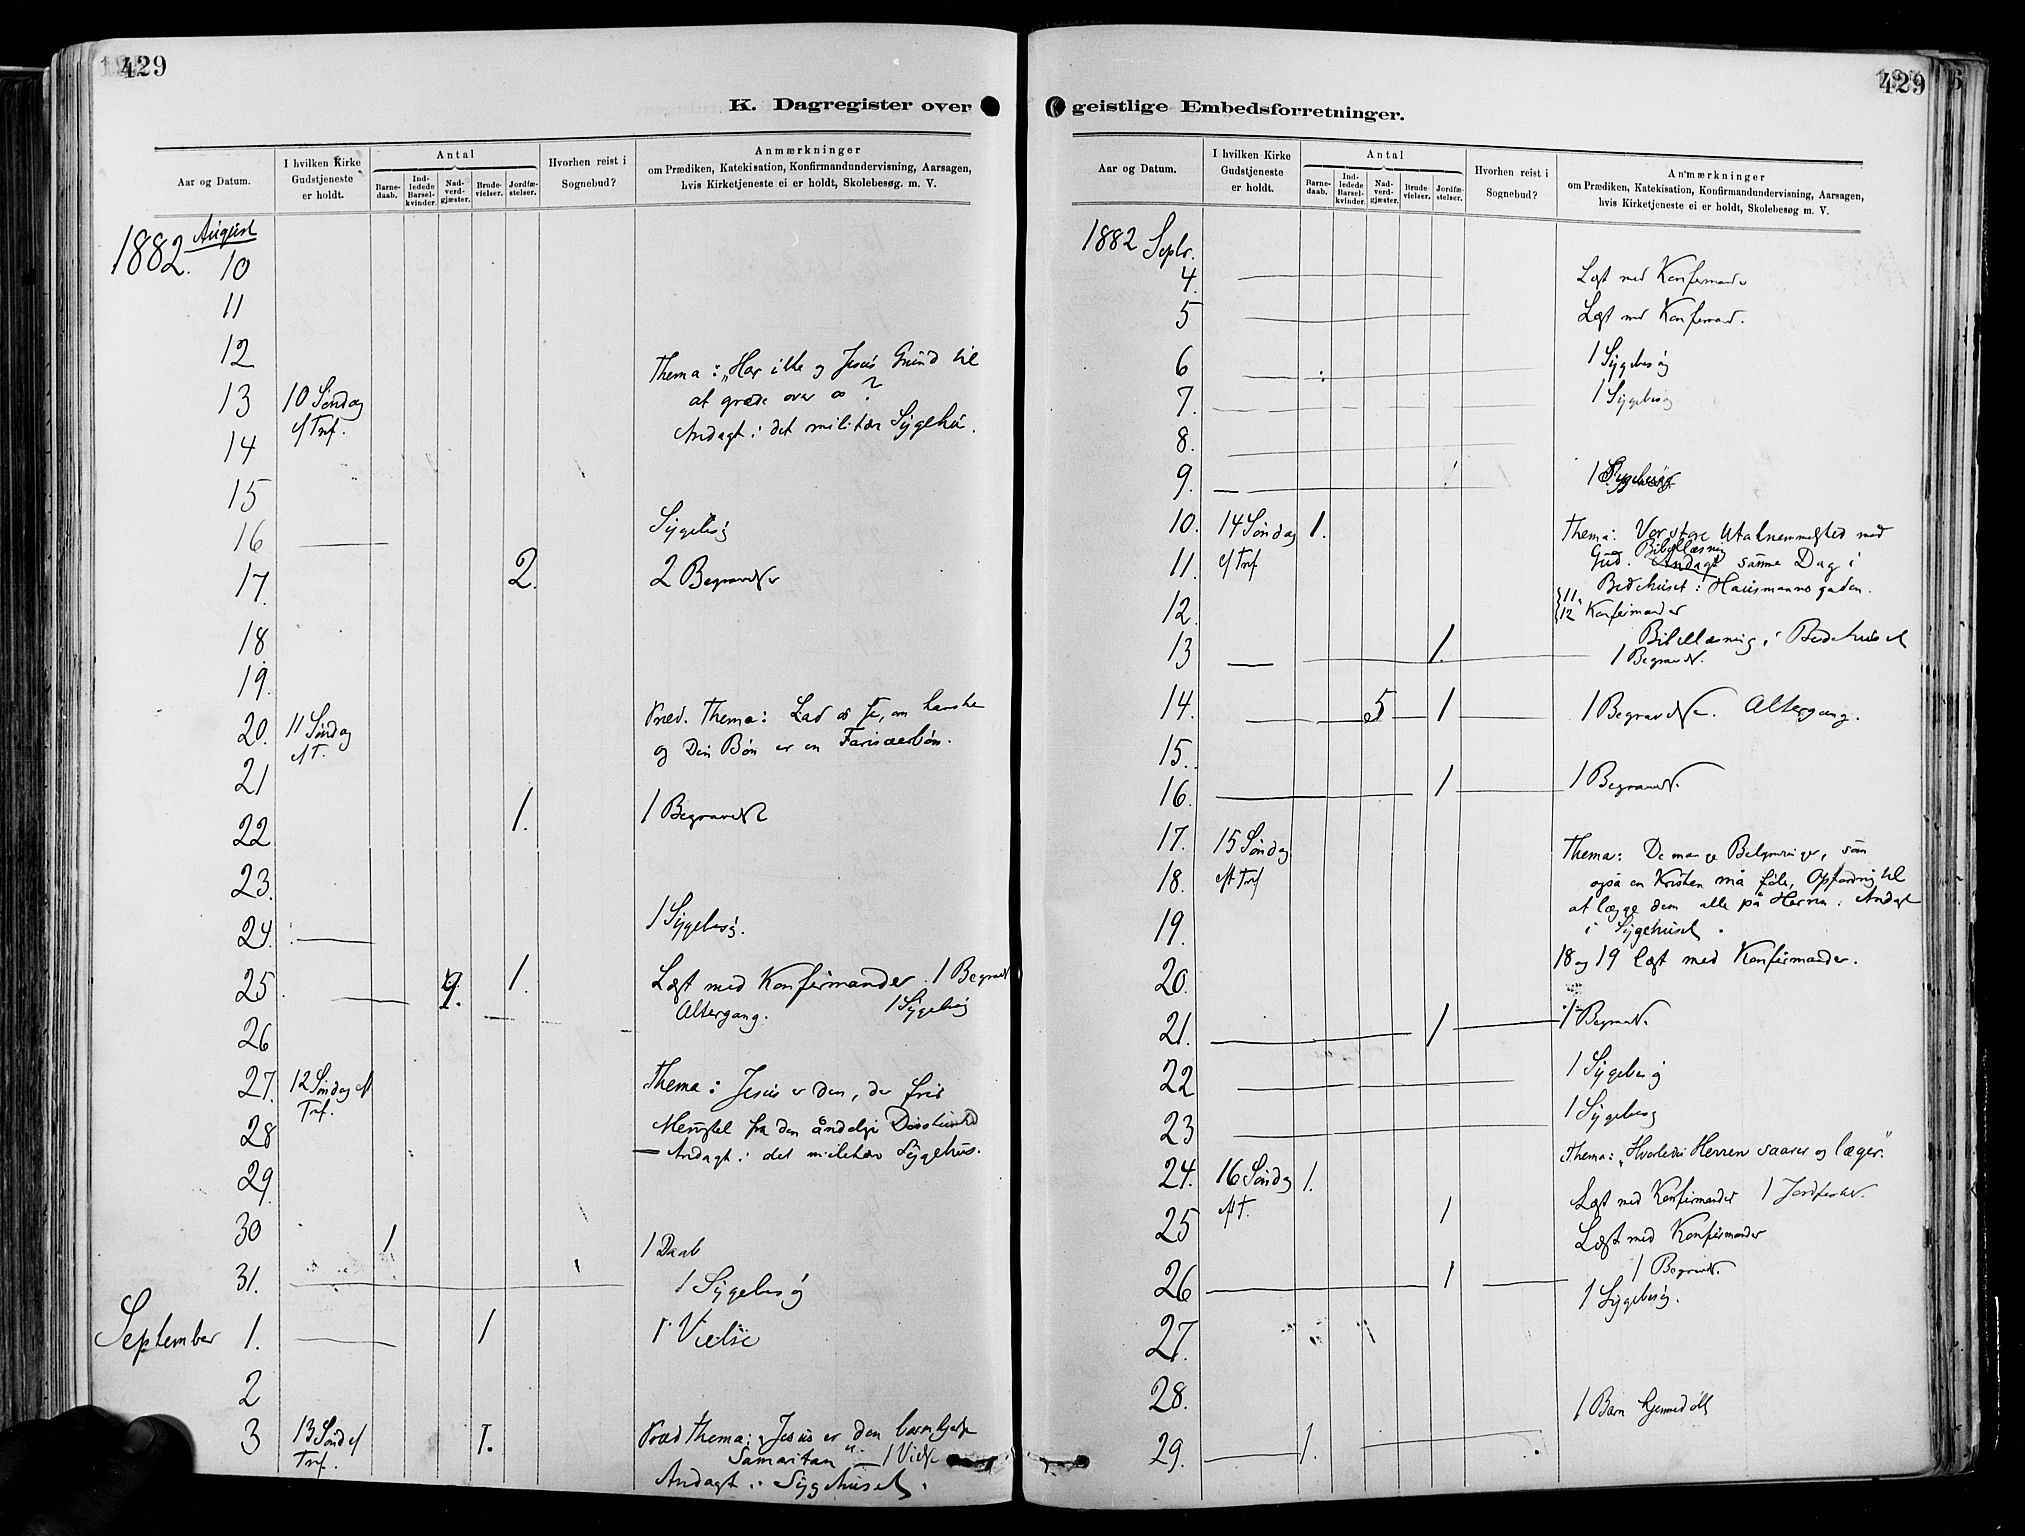 429
K. Dagregister over
Aar og Datum.
I hvilken Kirke
Gudstjeneste
er holdt.
Antal
Barne-
daab.
Ind-
ledede
Barsel-
kvinder.
Nad-
verd-
gjæster.
Brude-
vielser.
Jordfæ-
stelser.
Hvorhen reist i
Sognebud?
Anmærkninger
om Prædiken, Katekisation, Konfirmandundervisning, Aarsagen,
hvis Kirketjeneste ei er holdt, Skolebesøg. m. V.
1882. August
10
11
12
Thema: „Har ikke og Jesus Grund til
13 10 Søndag at græde over os?
e/ Tref. Andagt i det militære Sygehu.
14
15
16 Sygebesøg
17. 2. 2 Begravelser
18
19.
20. 11 Søndag Præd. Thema: Lad os se, om kanske
e/ T. og Din Bøn er en Farisæerbøn.
21
22 1. 1 Begravelse
23.
24. 1 Sygebesøg.
25 9. 1. Læst med Konfirmander. 1 Begravel
Altergang. 1 Sygebesøg
26
27. 12 Søndag eft Thema: Jesus er den, der frir
Tref. fra den åndelige
28 Andagt i det militære Sygehus.
29.
30 1 1 Daab
31. 1 Sygebesøg
September 1. 1 1 Vielse
2
3 13 Sønd e/ 1. Præd Thema: „Jesus er den barmhjertige
Tref. Samaritan“ — 1 Vielse
Andagt i Sygehuset.
429
geistlige Embedsforretninger.
Aar og Datum.
I hvilken Kirke
Gudstjeneste
er holdt.
Antal
Barne-
daab.
Ind-
ledede
Barsel-
kvinder.
Nad-
verd-
gjæster.
Brude-
vielser.
Jordfæ-
stelser.
Hvorhen reist i
Sognebud?
Anmærkninger
om Prædiken, Katekisation, Konfirmandundervisning, Aarsagen,
hvis Kirketjeneste ei er holdt, Skolebesøg m. V.
1882 Septr.
4. Læst med Konfirmander
5 Læst med Konfirmand.
6 1 Sygebesøg
7. 1 Sygebesøg
8.
9. 1 Sygebesøg
10. 14 Søndag 1. Thema: Vor store Utaknemmelighed mod
e/ Tref Gud. Bibellæsning samme Dag i
11. Bedehuset i Hausmannsgaden.
11, 12 Konfirmander
12. Bibellæsning i Bedehuset
13 1. 1 Begravels.
14. 5 1 1 Begravelse. Altergang.
15.
16. 1 1 Begravels.
17. 15 Søndag Thema: De mange Bekymringer, som
eft Tref også en Kristen må føle, Opfordring til
18. at lægge dem alle på Herren. Andagt
i Sygehuset.
19. 18 og 19 læst med Konfirmander.
20.
21. 1 1 Begravels.
22 1 Sygebesøg
23 1 Sygebesøg
Thema: „Hvorledes Herren saarer og læger“
24. 16 Søndag 1.
eft T. Læst med Konfirmander 1 Jordfæstels.
25 1 Læst med Konfirmander
26 1 1 Begravels.
1 Sygebesøg.
27.
28. 1 Barn hjemmedøbt
29. 1.